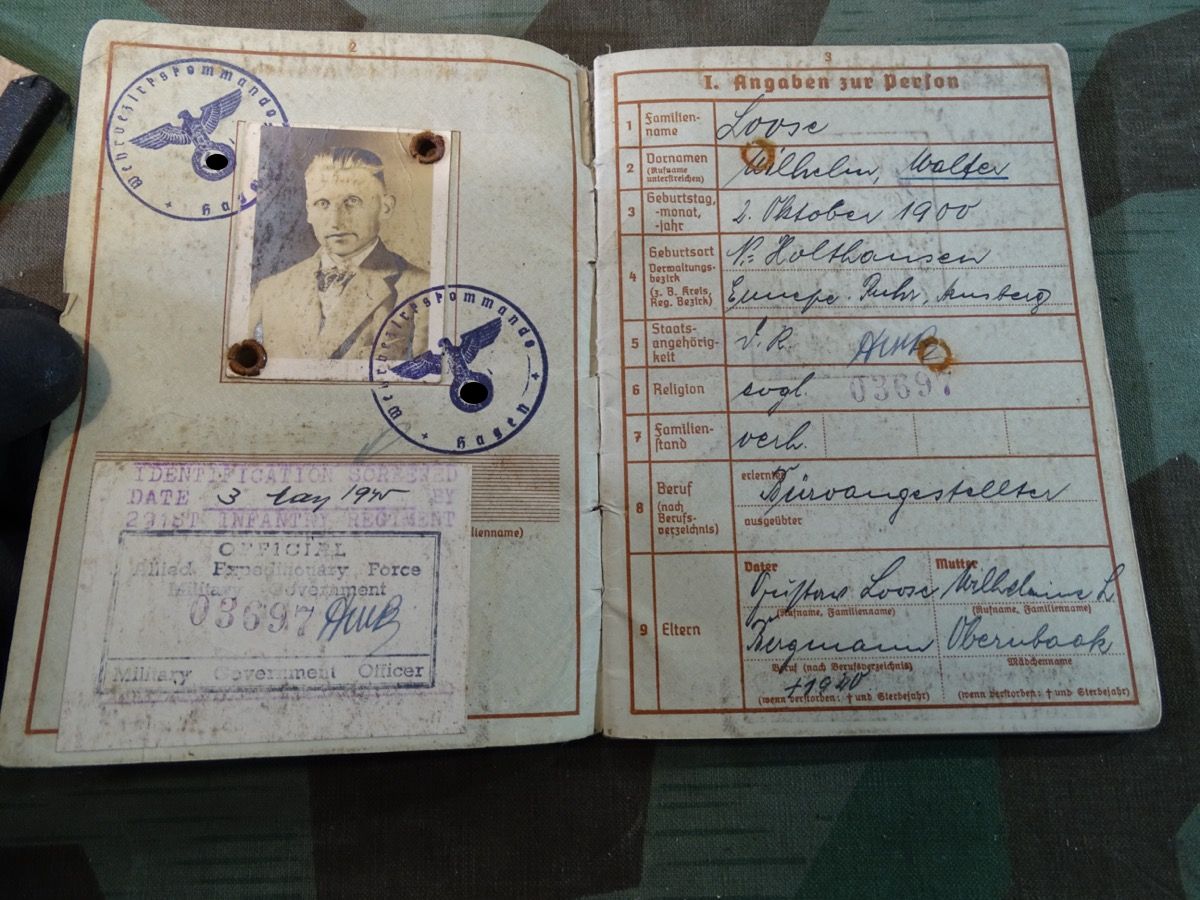 2
Wehrbezirkskommando
Hagen
Wehrbezirkskommando
Hagen
IDENTIFICATION SCREENED
DATE 3 May 1945 BY
291ST INFANTRY REGIMENT
ilienname)
OFFICIAL
Allied Expeditionary Force
Military Government
03697
Military Government Officer
3
I. Angaben zur Person
1 Familien-
name
Loose
2 Vornamen
(Rufname
unterstreichen)
Wilhelm, Walter
3 Geburtstag,
-monat,
-jahr
2. Oktober 1900
4 Geburtsort
Verwaltungs-
bezirk
(z. B. Kreis,
Reg. Bezirk)
Holthausen
Ennepe-Ruhr, Arnsberg
5 Staats-
angehörig-
keit
D.R.
6 Religion
evgl.
03697
7 Familien-
stand
verh.
8 Beruf
(nach
Berufs-
verzeichnis)
erlernter
Büroangestellter
ausgeübter
9 Eltern
Vater
Mutter
Gustav Loose
Wilhelmine L
(Rufname, Familienname)
(Rufname, Familienname)
Bergmann
Beruf (nach Berufsverzeichnis)
Mädchenname
(wenn verstorben: † und Sterbejahr)
(wenn verstorben: † und Sterbejahr)